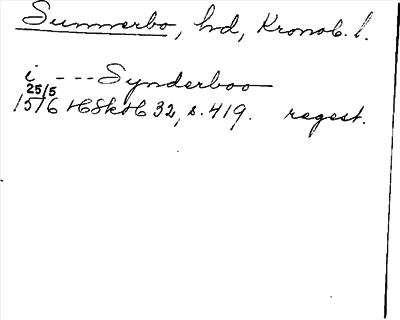 Sunnerbo, hd, Kronob. l.
i --- Synderboo
25/5
1516 HSkH 32, s. 419. regest.